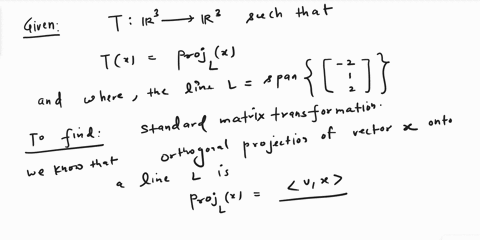 Given: T : ℝ³ ⟶ ℝ³ such that
T(x) = Proj_L(x)
and where, the line L = span { [ -2 1 2 ] }
To find: standard matrix transformation.
we know that orthogonal projection of vector x onto
a line L is
Proj_L(x) = <v,x>